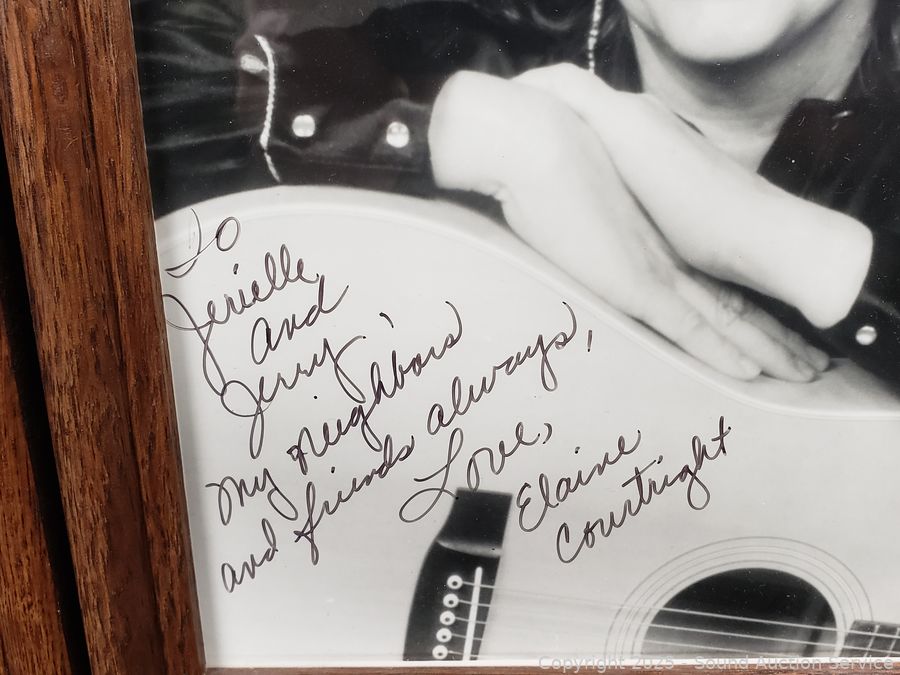 To
Jerielle
and
Jerry,
my neighbors
and friends always,
Love,
Elaine
Courtright
Copyright 2025 - Sound Auction Service